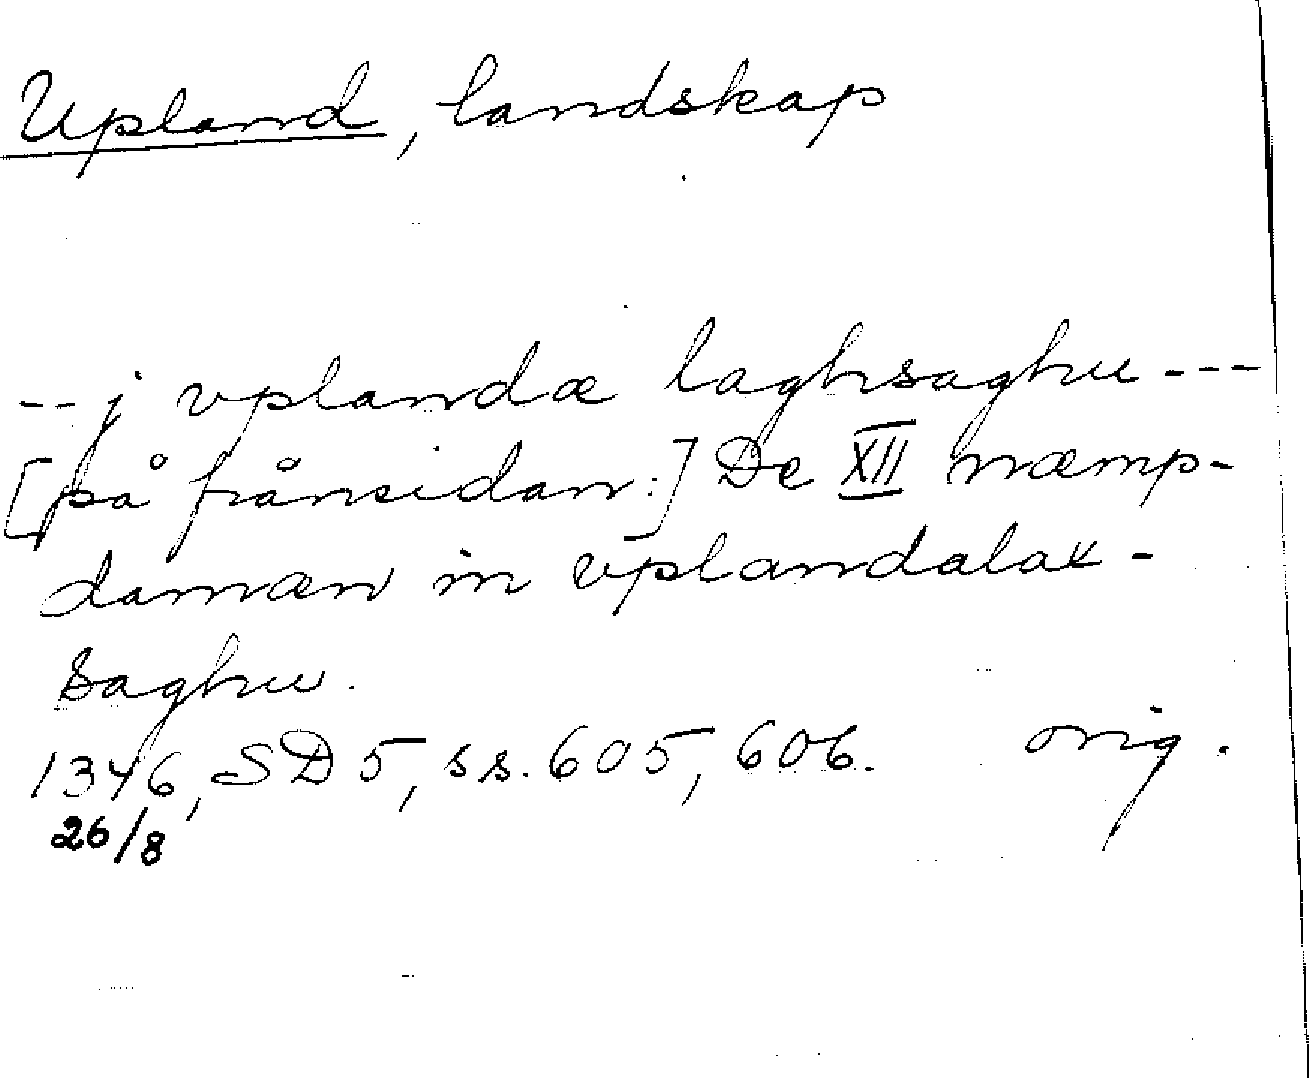 Upland, landskap
-- j vplandæ laghsaghu ---
[på frånsidan:] De XII næmp-
damæn in vplandalax-
saghu.
1346, SD 5, ss. 605, 606. orig.
26/8